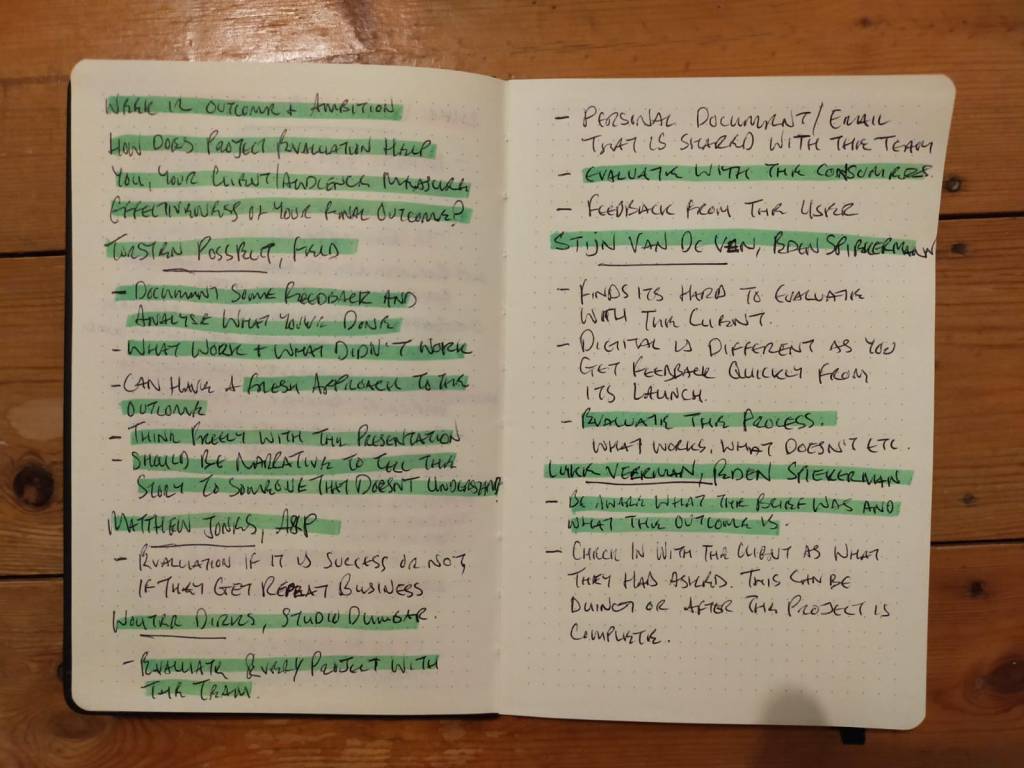 WEEK 12 OUTCOME + AMBITION
HOW DOES PROJECT EVALUATION HELP
YOU, YOUR CLIENT/AUDIENCE MEASURE
EFFECTIVENESS OF YOUR FINAL OUTCOME?
TORSTEN POSSELT, FELD
- DOCUMENT SOME FEEDBACK AND
ANALYSE WHAT YOU'VE DONE
- WHAT WORK + WHAT DIDN'T WORK
- CAN HAVE A FRESH APPROACH TO THE
OUTCOME
- THINK FREELY WITH THE PRESENTATION
- SHOULD BE NARRATIVE TO TELL THE
STORY TO SOMEONE THAT DOESN'T UNDERSTAND
MATTHEW JONES, A&P
- EVALUATION IF IT IS SUCCESS OR NOT,
IF THEY GET REPEAT BUSINESS
WOUTER DIRKS, STUDIO DUMBAR.
- EVALUATE EVERY PROJECT WITH
THE TEAM.
- PERSONAL DOCUMENT/EMAIL
THAT IS SHARED WITH THE TEAM
- EVALUATE WITH THE CONSUMERS.
- FEEDBACK FROM THE USER
STIJN VAN DE VEN, EDEN SPIEKERMANN
- FINDS ITS HARD TO EVALUATE
WITH THE CLIENT.
- DIGITAL IS DIFFERENT AS YOU
GET FEEDBACK QUICKLY FROM
ITS LAUNCH.
- EVALUATE THE PROCESS.
WHAT WORKS, WHAT DOESN'T ETC.
LUKE VEERMAN, EDEN SPIEKERMAN
- BE AWARE WHAT THE BRIEF WAS AND
WHAT THE OUTCOME IS.
- CHECK IN WITH THE CLIENT AS WHAT
THEY HAD ASKED. THIS CAN BE
OR AFTER THE PROJECT IS
COMPLETE.